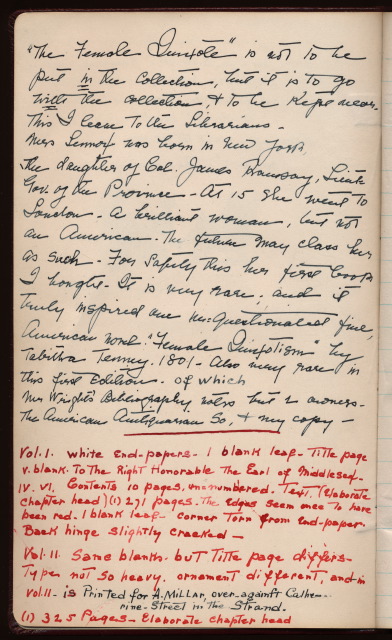 "The Female Quixote" is not to be
put in the Collection, but it is to go
with the collection, & to be Kept near.
This I leave to the Librarians -
Mrs Lennox was born in New York,
the daughter of Col. James Ramsay, Lieut
Gov. of the Province - At 15 she went to
London - A brilliant woman, but not
an American - The future may class her
as such - For safety this her first book
I bought - It is very rare, and it
truly inspired one un-questionable fine,
American novel "Female Quixotism" by
Tabitha Tenney. 1801 - Also very rare in
this first Edition - of which
Mr Wright's Bibliography notes but 2 owners -
The American Antiquarian So, & my copy -
Vol. I. white End-papers - 1 blank leaf - Title page
v. blank. To The Right Honorable The Earl of Middlesex -
IV. VI. Contents 10 pages, unnumbered. Text, (elaborate
chapter head) (1) 271 pages. The Edges seem once To have
been red. 1 blank leaf - corner Torn from End-paper.
Back hinge slightly cracked -
Vol. II. Same blanks - but Title page differs -
Type not so heavy, ornament different, and in
Vol. II - is Printed for A. Millar, over-against Cathe-
rine-Street in the Strand.
(1) 325 Pages - Elaborate chapter head